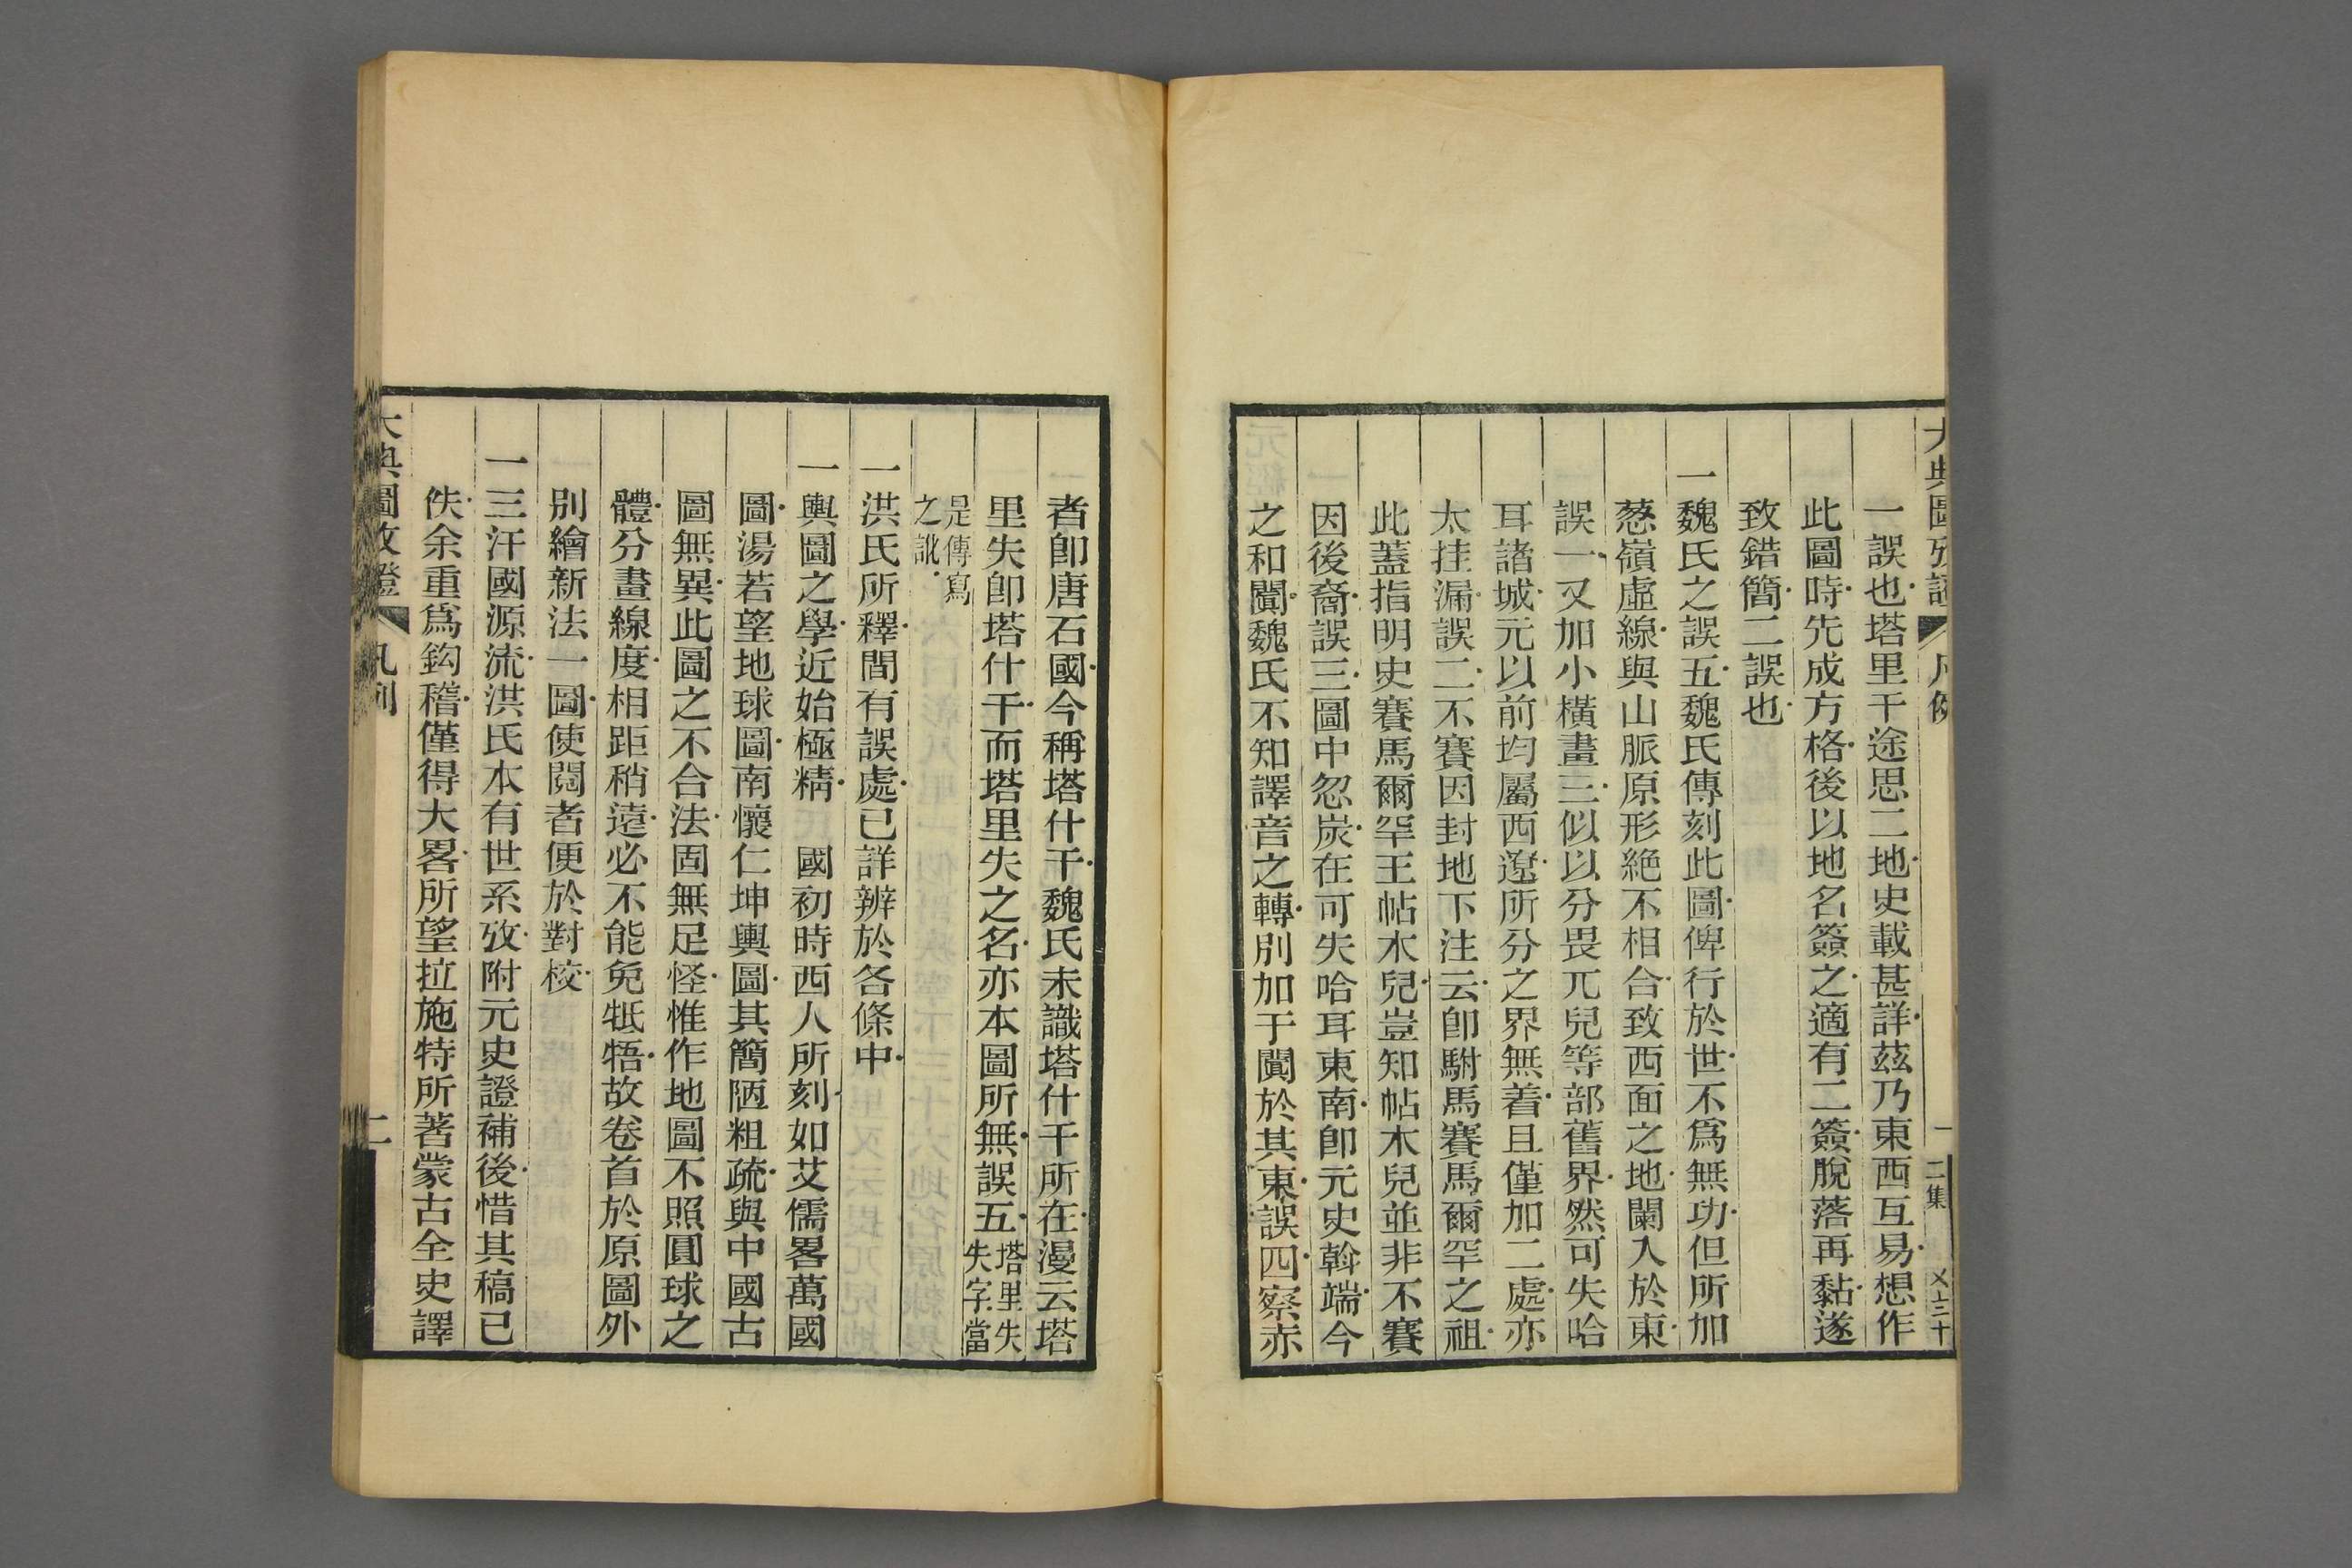 大典圖攷證 凡例 一 二集
一誤也塔里干途思二地史載甚詳茲乃東西互易想作
此圖時先成方格後以地名簽之適有二簽脫落再黏遂
致錯簡二誤也
一魏氏之誤五魏氏傳刻此圖俾行於世不爲無功但所加
葱嶺虛線與山脈原形絶不相合致西面之地闌入於東
誤一又加小橫畫三似以分畏兀兒等部舊界然可失哈
耳諸城元以前均屬西遼所分之界無着且僅加二處亦
太挂漏誤二不賽因封地下注云卽駙馬賽馬爾罕之祖
此蓋指明史賽馬爾罕王帖木兒豈知帖木兒並非不賽
因後裔誤三圖中忽炭在可失哈耳東南卽元史斡端今
之和闐魏氏不知譯音之轉別加于闐於其東誤四察赤
者卽唐石國今稱塔什干魏氏未識塔什干所在漫云塔
里失卽塔什干而塔里失之名亦本圖所無誤五塔里失失字當
是傳寫之訛
一洪氏所釋間有誤處已詳辨於各條中
一輿圖之學近始極精 國初時西人所刻如艾儒畧萬國
圖湯若望地球圖南懷仁坤輿圖其簡陋粗疏與中國古
圖無異此圖之不合法固無足怪惟作地圖不照圓球之
體分畫線度相距稍遠必不能免牴牾故卷首於原圖外
別繪新法一圖使閱者便於對校
一三汗國源流洪氏本有世系攷附元史證補後惜其稿已
佚余重爲鈎稽僅得大畧所望拉施特所著蒙古全史譯
大典圖攷證 凡例 二